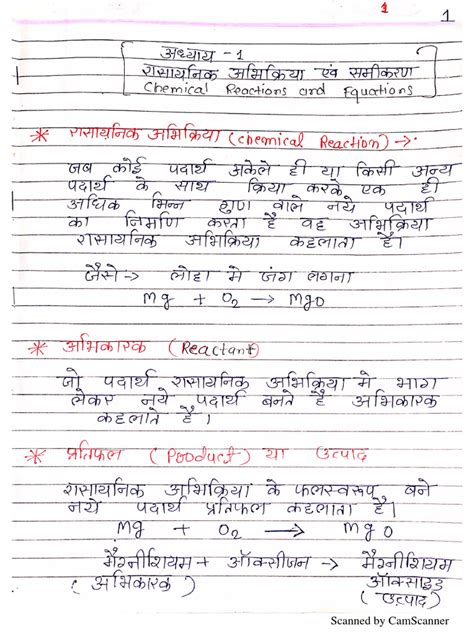 1
1
अध्याय - 1
रासायनिक अभिक्रिया एवं समीकरण
Chemical Reactions and Equations
* रासायनिक अभिक्रिया (Chemical Reaction) →
जब कोई पदार्थ अकेले ही या किसी अन्य
पदार्थ के साथ क्रिया करके एक ही
अधिक भिन्न गुण वाले नये पदार्थ
का निर्माण करता है वह अभिक्रिया
रासायनिक अभिक्रिया कहलाता है।
जैसे → लोहा मे जंग लगना
Mg + O₂ → MgO
* अभिकारक (Reactant)
जो पदार्थ रासायनिक अभिक्रिया मे भाग
लेकर नये पदार्थ बनते है अभिकारक
कहलाते है।
* प्रतिफल (Pooduct) या उत्पाद
रासायनिक अभिक्रिया के फलस्वरूप बने
नये पदार्थ प्रतिफल कहलाता है।
Mg + O₂ → MgO
मैग्नीशियम + ऑक्सीजन → मैग्नीशियम
(अभिकारक) ऑक्साइड
(उत्पाद)
Scanned by CamScanner